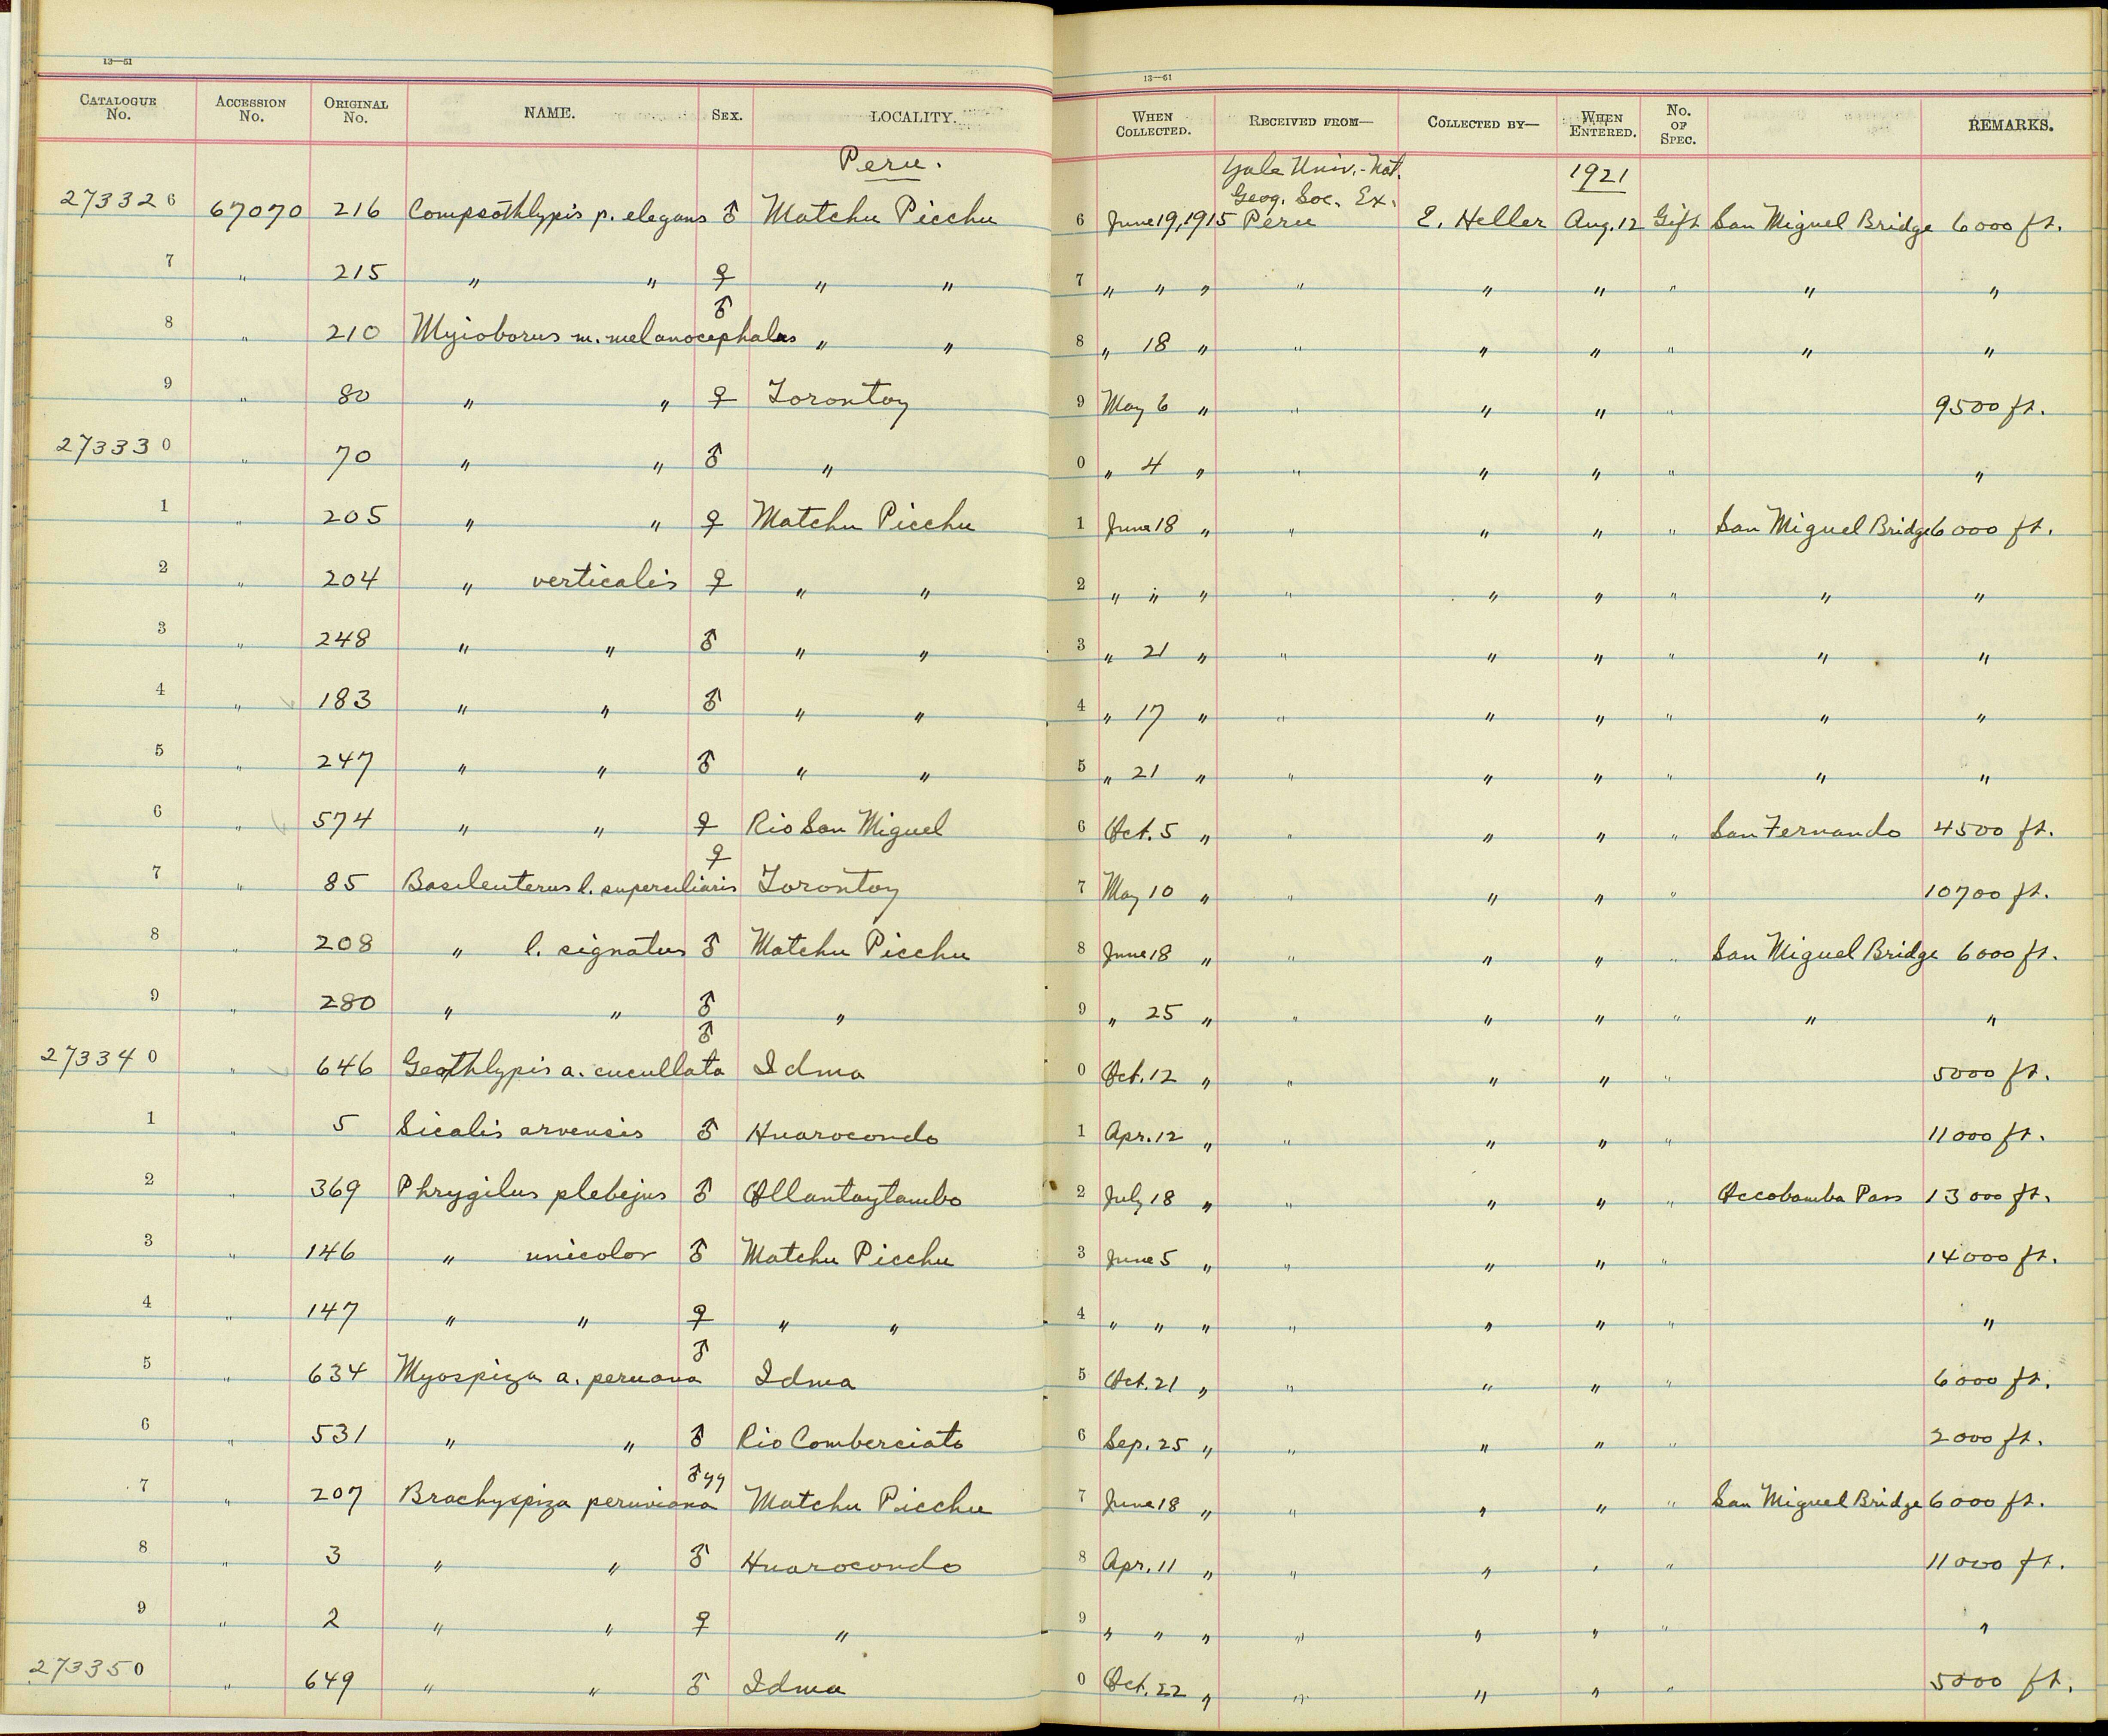 13—61 13—61
CATALOGUE No. ACCESSION No. ORIGINAL No. NAME. SEX. LOCALITY. WHEN COLLECTED. RECEIVED FROM— COLLECTED BY— WHEN ENTERED. No. OF SPEC. REMARKS.
Peru. Yale Univ.-Nat. 1921
Geog. Soc. Ex.
273326 67070 216 Compsothlypis p. elegans ♂ Matchu Picchu 6 June 19, 1915 Peru E. Heller Aug. 12 Gift San Miguel Bridge 6000 ft.
7 " 215 " " ♀ " " 7 " " " " " " " " "
8 " 210 Myioborus m. melanocephalus ♂ " " 8 " 18 " " " " " " "
9 " 80 " " ♀ Torontoy 9 May 6 " " " " " 9500 ft.
273330 " 70 " " ♂ " 0 " 4 " " " " " "
1 " 205 " " ♀ Matchu Picchu 1 June 18 " " " " " San Miguel Bridge 6000 ft.
2 " 204 " verticalis ♀ " " 2 " " " " " " " " "
3 " 248 " " ♂ " " 3 " 21 " " " " " " "
4 " 183 " " ♂ " " 4 " 17 " " " " " " "
5 " 247 " " ♂ " " 5 " 21 " " " " " " "
6 " 574 " " ♀ Rio San Miguel 6 Oct. 5 " " " " " San Fernando 4500 ft.
7 " 85 Basileuterus l. superciliaris ♀ Torontoy 7 May 10 " " " " " 10700 ft.
8 " 208 " l. signatus ♂ Matchu Picchu 8 June 18 " " " " " San Miguel Bridge 6000 ft.
9 " 280 " " ♂ " 9 " 25 " " " " " " "
273340 " 646 Geothlypis a. cucullata ♂ Idma 0 Oct. 12 " " " " " 5000 ft.
1 " 5 Sicalis arvensis ♂ Huarocondo 1 Apr. 12 " " " " " 11000 ft.
2 " 369 Phrygilus plebejus ♂ Ollantaytambo 2 July 18 " " " " " Occobamba Pass 13000 ft.
3 " 146 " unicolor ♂ Matchu Picchu 3 June 5 " " " " " 14000 ft.
4 " 147 " " ♀ " " 4 " " " " " " " "
5 " 634 Myospiza a. peruana ♂ Idma 5 Oct. 21 " " " " " 6000 ft.
6 " 531 " " ♂ Rio Comberciato 6 Sep. 25 " " " " " 2000 ft.
7 " 207 Brachyspiza peruviana ♂ yg Matchu Picchu 7 June 18 " " " " " San Miguel Bridge 6000 ft.
8 " 3 " " ♂ Huarocondo 8 Apr. 11 " " " " " 11000 ft.
9 " 2 " " ♀ " 9 " " " " " " " "
273350 " 649 " " ♂ Idma 0 Oct. 22 " " " " " 5000 ft.